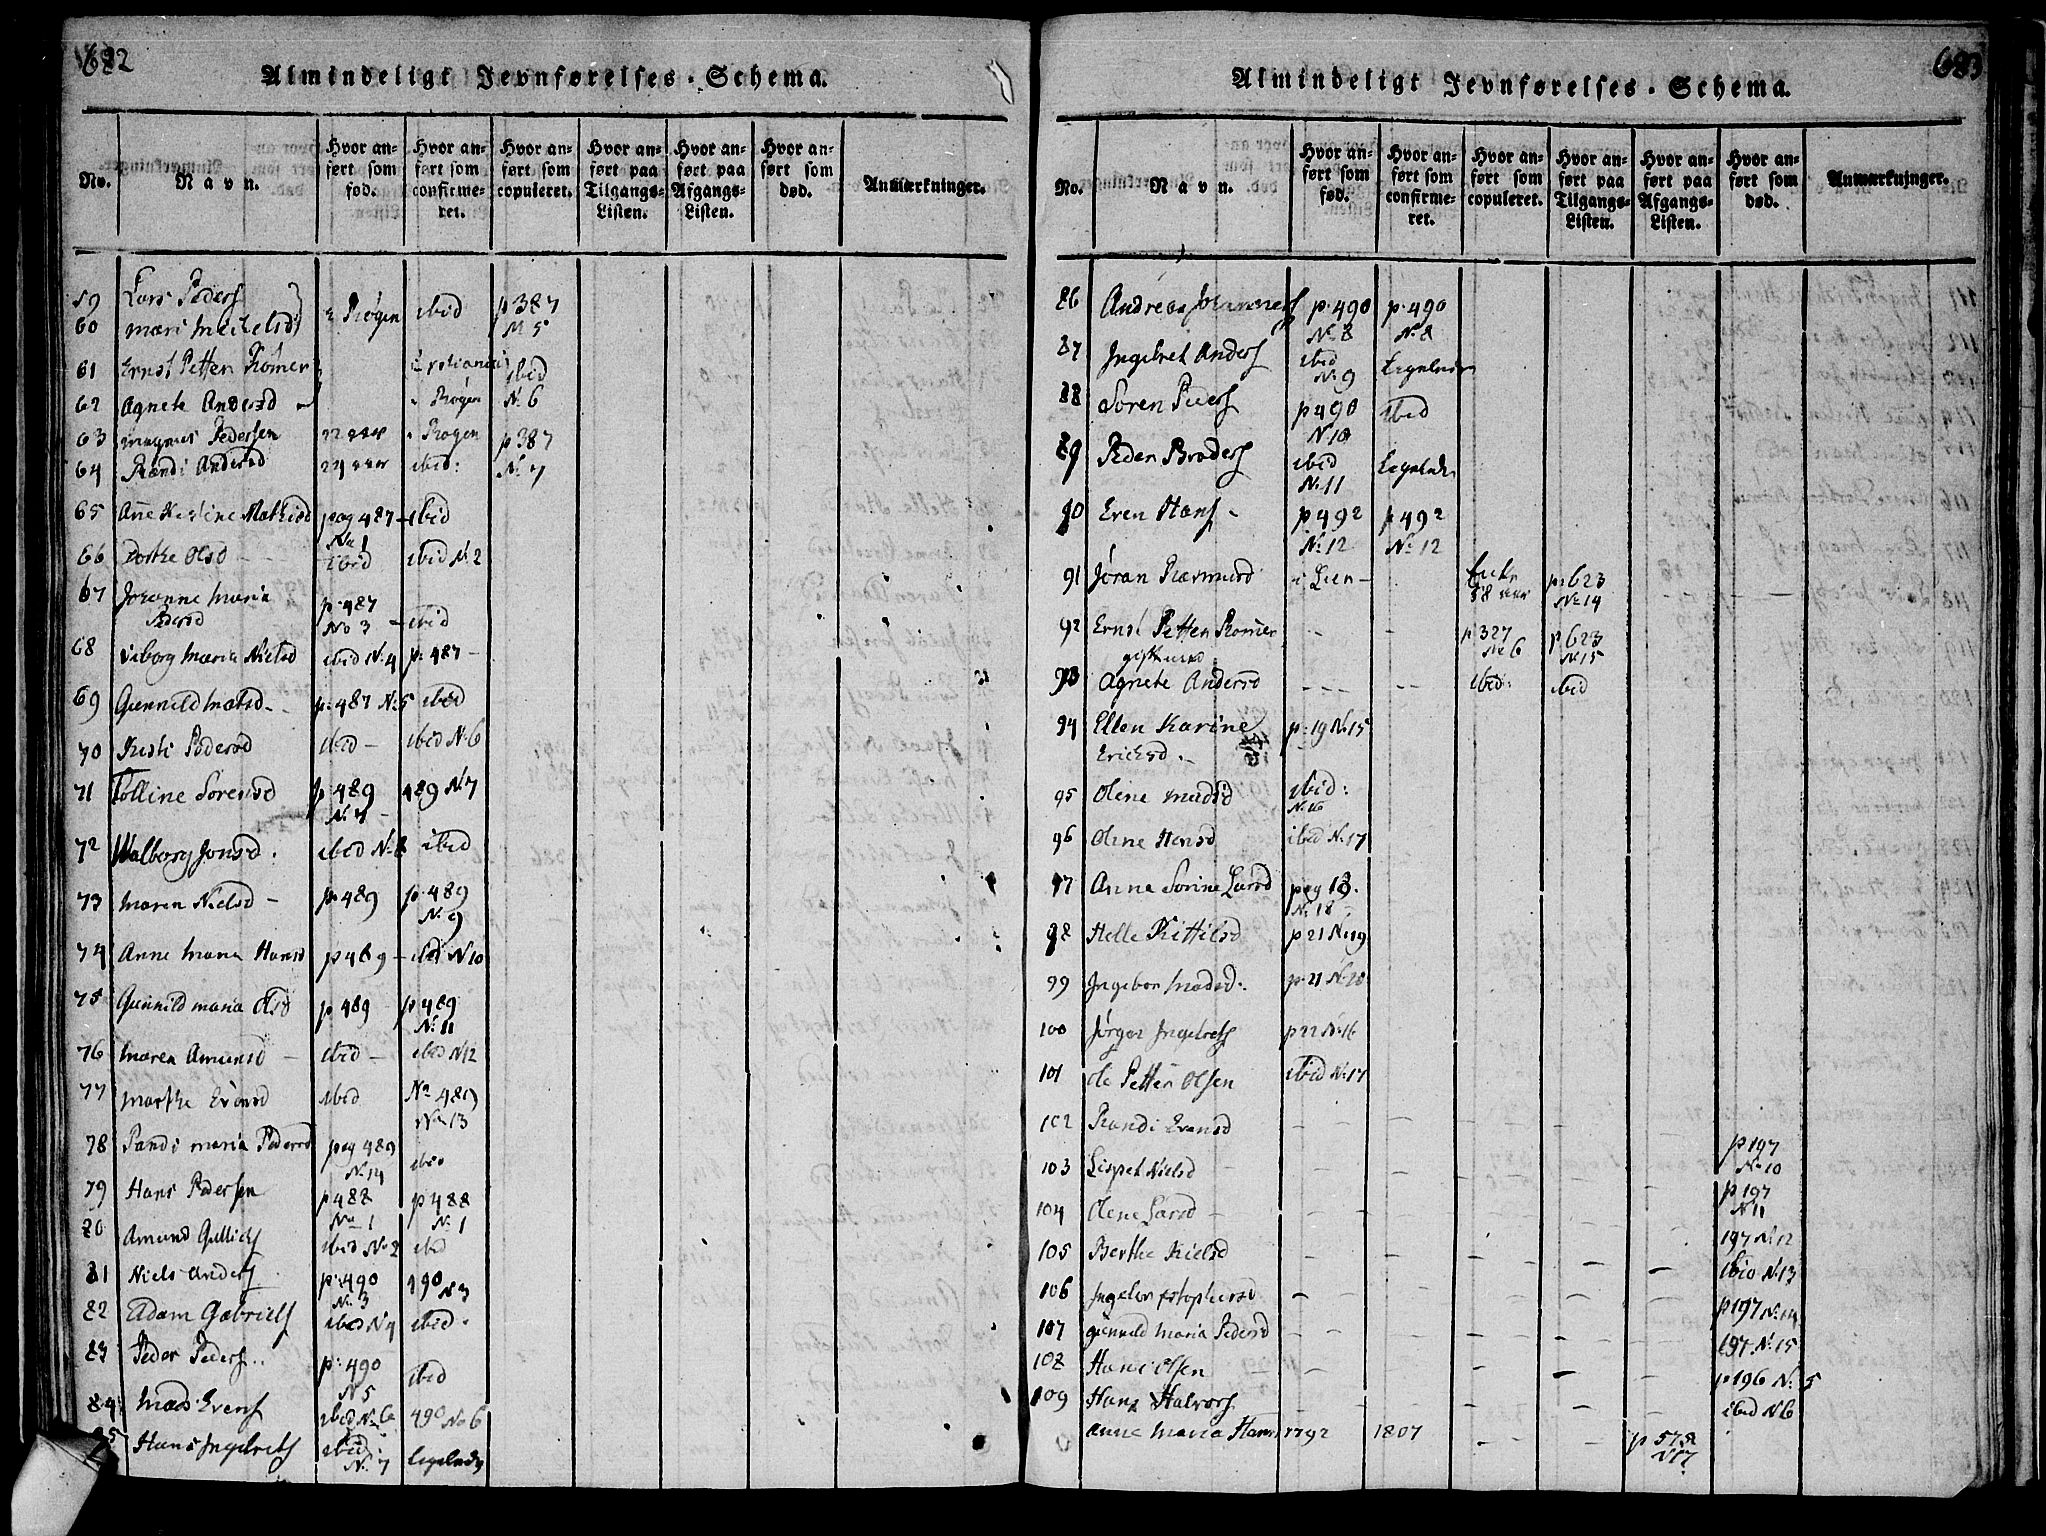 682
Almindeligt Jevnførelses-Schema.
No. Navn. Hvor anført som fød. Hvor anført som confirmeret. Hvor anført som copuleret. Hvor anført paa Tilgangs-Listen. Hvor anført paa Afgangs-Listen. Hvor anført som død. Anmærkninger.
59 Lars Peders
60 Mari Michelsd i Røgen ibid p 387 N 5
61 Ernst Petter Rømer ibid
62 Agnete Andersd Røgen N. 6
63 Magnus Pedersen 22 aar Røgen p 387
64 Randi Andersd 24 aar ibid: N. 7
65 Ane Kirstine Mathisd pag 487 No 1 ibid
66 Dorthe Olsd ibid ibid N. 2
67 Johanne Maria
Pedersd p. 487 No 3 ibid
68 Viborg Maria Nielsd ibid N. 4 p. 487
69 Gunnild Matsd p. 487 N. 5 ibid
70 Kisti Pedersd ibid ibid N. 6
71 Tolline Sørensd p 489 N. 7 489 N. 7
72 Walborg Jonsd. ibid N. 8 ibid
73 Maren Nielsd p. 489 p. 489 N. 9
74 Anne Maria Hansd p 489 ibid N 10
75 Gunnild Maria Olsd p 489 p 489 N. 11
76 Maren Amunsd ibid ibid N 12
77 Marthe Evensd ibid No 489 No 13
78 Randi Maria Pedersd pag 489 N. 14 ibid
79 Hans Pedersen p 488 No 1 p 488 N. 1
80 Amund Gullichs ibid No 2 ibid
81 Niels Anders p. 490 No. 3 490 N 3
82 Adam Gabriels ibid N 4 ibid.
83 Peder Peders.. p. 490 N 5 ibid
84 Mads Evens ibid N. 6 490 No 6
85 Hans Ingebrets ibid: N. 7 Ligeledes
683
Almindeligt Jevnførelses-Schema.
No. Navn. Hvor anført som fød. Hvor anført som confirmeret. Hvor anført som copuleret. Hvor anført paa Tilgangs-Listen. Hvor anført paa Afgangs-Listen. Hvor anført som død. Anmærkninger.
86 Andreas Johannes p. 490 No 8 p. 490 N. 8
87 Ingebret Anders ibid N. 9 Ligeledes
88 Soren Peders p 490 N 10 ibid
89 Peder Broders ibid No. 11 Ligeledes
90 Even Hans p 492 No 12 p 492 No 12
91 Jöran Rasmusd i Lier 58 aar p. 623 No 14
92 Ernst Petter Romer p 327 No 6 p 623 N. 15
gift med
93 Agnete Andersd ibid: ibid
94 Ellen Karine p. 19 N. 15
Ericksd.
95 Olene Madsd ibid: N. 16
96 Olene Hansd ibid N. 17
97 Anne Sorine Larsd pag 19. N. 18
98 Helle Kittilsd p 21 No 19
99 Ingebor Madsd. p. 21 N. 20
100 Jörgen Ingebrets p 22 N. 16
101 Ole Petter Olsen ibid N. 17
102 Randi Evensd p 197 No 10
103 Lispet Nielsd p 197 N 11
104 Olene Larsd 197 N. 12
105 Berthe Nielsd ibid N. 13
106 Ingebor p 197 No 14
107 Gunnild Maria Pedersd 197 N. 15
108 Hans Olsen p 196 N. 5
109 Hans Halvors ibid N 6
Anne Maria Hans 1792 1807 p 578 N 17